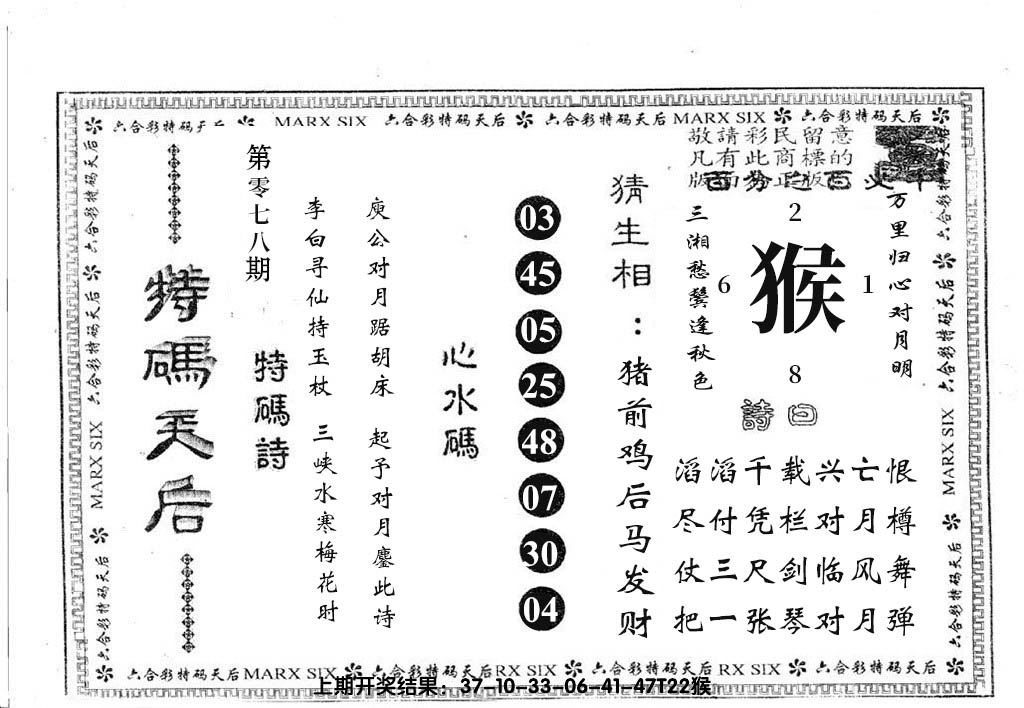 六合彩特码天后 MARX SIX 六合彩特码天后 六合彩特码天后 MARX SIX 六合彩特码天后
特碼天后
第零七八期
特碼詩
李白寻仙持玉杖 三峡水寒梅花时
庾公对月踞胡床 起予对月鏖此诗
心水碼
03
45
05
25
48
07
30
04
猜生相：猪前鸡后马发财
敬請彩民留意
凡有此商標的
三湘愁鬓逢秋色
2
6 猴 1
8
万里归心对月明
詩曰
滔滔千载兴亡恨
尽付凭栏对月樽
仗三尺剑临风舞
把一张琴对月弹
六合彩特码天后 MARX SIX 六合彩特码天后
六合彩特码天后 MARX SIX 六合彩特码天后
六合彩特码天后MARX SIX 六合彩特码天后RX SIX 六合彩特码天后RX SIX 六合彩特码天后
上期开奖结果：37-10-33-06-41-47T22猴